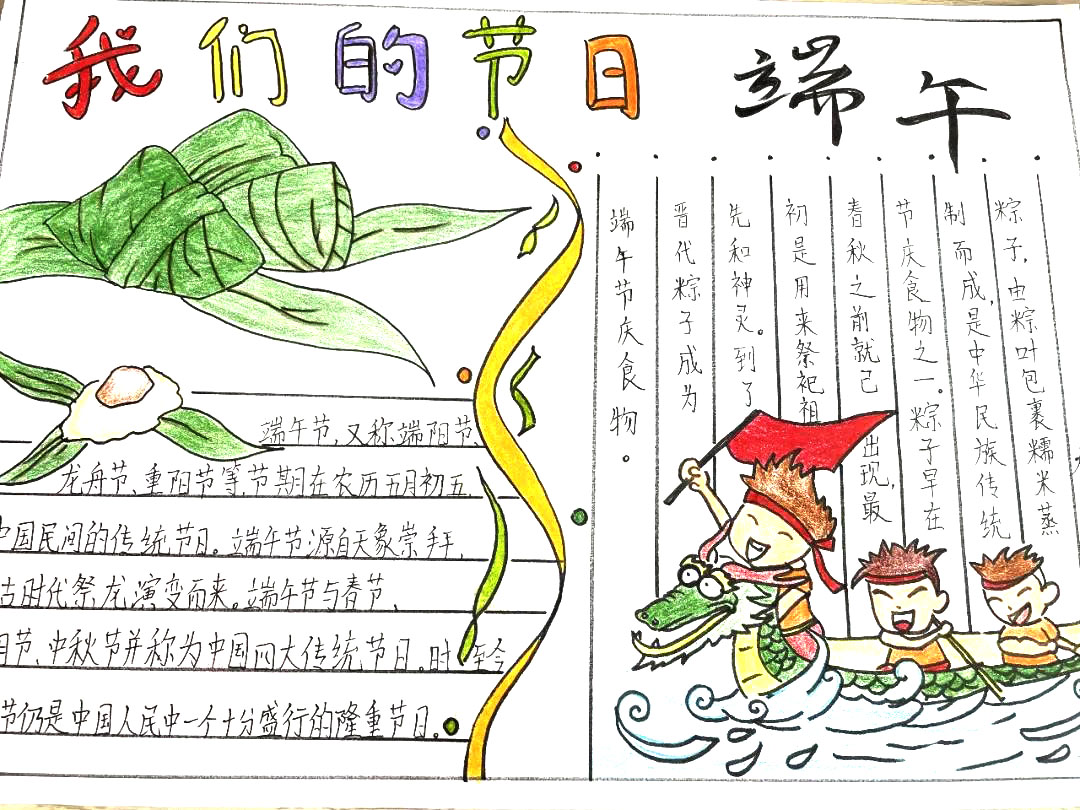 我们的节日
端午
端午节,又称端阳节、
龙舟节、重阳节等,节期在农历五月初五,
中国民间的传统节日。端午节源自天象崇拜,
古时代祭龙演变而来。端午节与春节、
节、中秋节并称为中国四大传统节日。时至今
节仍是中国人民中一个十分盛行的隆重节日。
粽子,由粽叶包裹糯米蒸
制而成,是中华民族传统
节庆食物之一。粽子早在
春秋之前就己出现,最
初是用来祭祀祖
先和神灵。到了
晋代粽子成为
端午节庆食物。